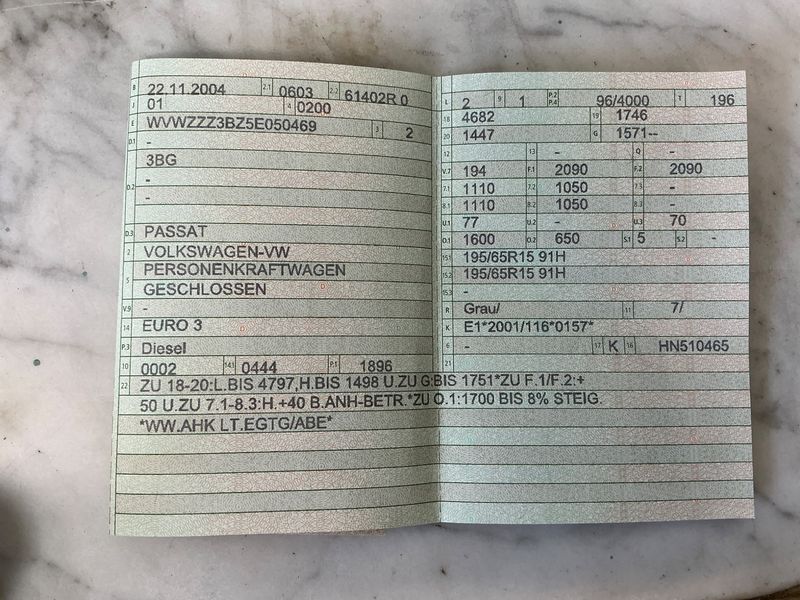 B 22.11.2004 2.1 0603 2.2 61402R 0
J 01 4 0200
E WVWZZZ3BZ5E050469 3 2
D.1 -
3BG
D.2 -
-
D.3 PASSAT
2 VOLKSWAGEN-VW
5 PERSONENKRAFTWAGEN
GESCHLOSSEN
V.9 -
14 EURO 3
P.3 Diesel
10 0002 14.1 0444 P.1 1896
L 2 9 1 P.2 P.4 96/4000 T 196
18 4682 19 1746
20 1447 G 1571--
12 13 - Q -
V.7 194 F.1 2090 F.2 2090
7.1 1110 7.2 1050 7.3 -
8.1 1110 8.2 1050 8.3 -
U.1 77 U.2 - U.3 70
O.1 1600 O.2 650 S.1 5 S.2 -
15.1 195/65R15 91H
15.2 195/65R15 91H
15.3 -
R Grau/ 11 7/
K E1*2001/116*0157*
6 - 17 K 16 HN510465
21
22 ZU 18-20:L.BIS 4797,H.BIS 1498 U.ZU G:BIS 1751*ZU F.1/F.2:+
50 U.ZU 7.1-8.3:H.+40 B.ANH-BETR.*ZU O.1:1700 BIS 8% STEIG.
*WW.AHK LT.EGTG/ABE*